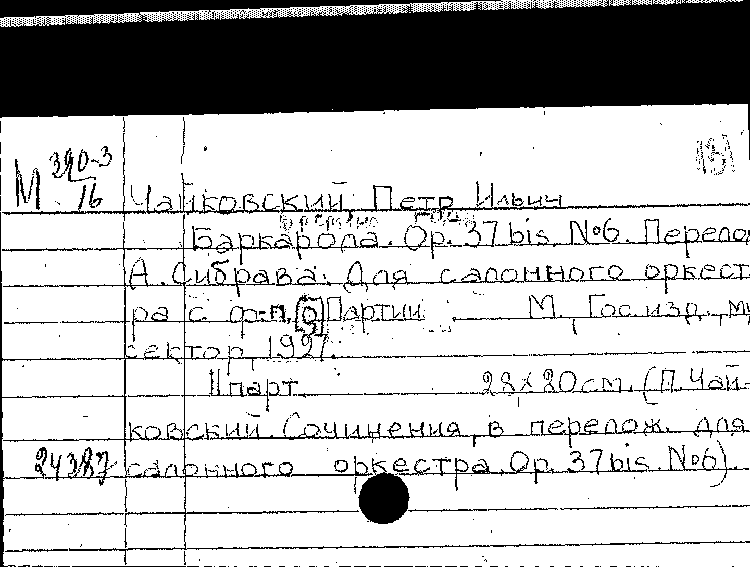 М 390-3/16
Чайковский, Петр Ильич
Баркарола. Op. 37 bis. №6. Перело
А. Сибрава. Для салонного оркест
ра с ф-п. Партии М., Гос. изд., му
сектор, 1927.
11 парт. 28х20 см. (П. Чай-
ковский. Сочинения, в перелож. для
24387 салонного оркестра. Op. 37 bis. №6).